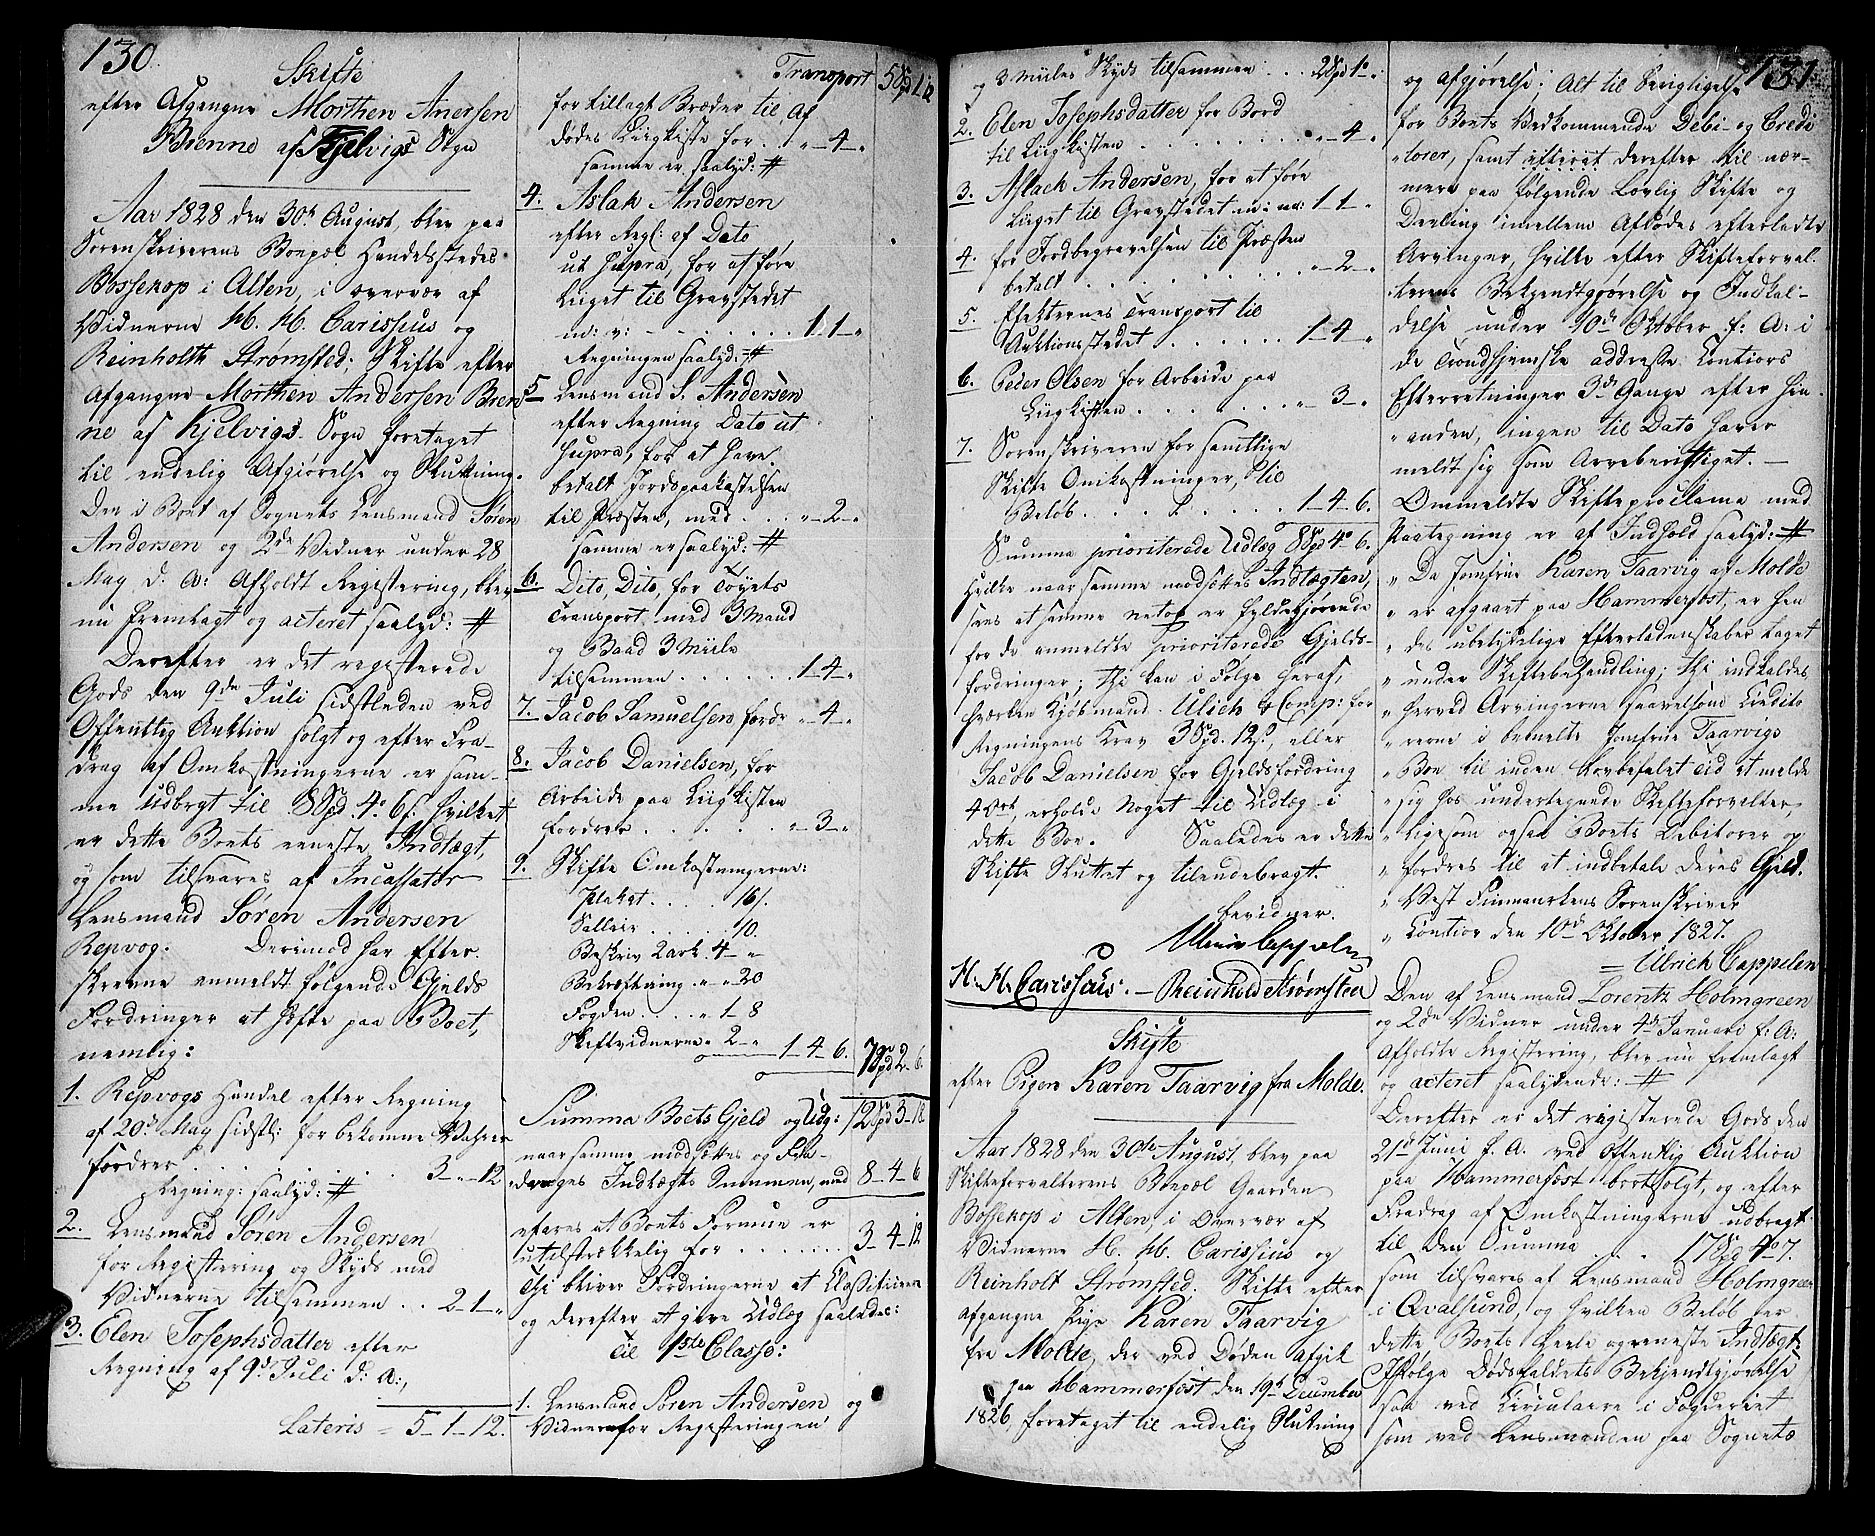 130.
Skifte
efter Afgangne Morthen Anersen
Brenne af Kjelvigs Sogn
Aar 1828 den 30te August, blev paa
Sorenskriverens Boepæl Handelsstedet
Bossekop i Alten, i overvær af
Vidnerne H. H. Carissius og
Reinholth Strømsted, Skifte efter
Afgangne Morthen Andersen Bren
ne af Kjelvigs Sogn foretaget
til endelig Afgiørelse og Slutning.
Den i Boet af Sognets Lensmand Søren
Andersen og 2de Vidner under 28
May d. A: afholdt Registering, blev
nu fremlagt og acteret saalyd: #
Derefter er det registerede
Gods den 9de Juli sidstleden ved
Offentlig Auktion solgt og efter Fra-
drag af Omkostningerne er sam-
me udbragt til 8Spd 4. 6s. hvilket
er dette Boets eneste Indtægt,
og som tilsvares af Incassator
Lensmand Søren Andersen
Repvog: Derimod har Efter-
skrevne anmeldt følgende Gjelds
Fordringer at hefte paa Boet,
nemlig:
1. Repvogs Handel efter Regning
af 20de May sidstl: for bekomne Vahrer
fordrer . . . . . . 3-"-12
Regning: saalyd: #
2. Lensmand Søren Andersen
for Registering og Skyds med
Vidnerne tilsammen . . 2-1-"
3. Elen Josephsdatter efter
Regning af 9de Juli d: A:,
Lateris = 5-1-12.
Transport 5Spd 1. 12
for tillagt Bræder til Af
dødes Liigkiste for . . "-4-"
samme er saalyd: #
4. Aslak Andersen
efter Regl: af Dato
ut supra, for at føre
Liiget til Gravstedet
m: v: - - - - - - - 1-1-"
Regningen saalyd: #
5 Lensmand S. Andersen
efter Regning Dato ut
supra, for at have
betalt Jordspaakastelsen
til Præsten, med . . . "-2-"
samme er saalyd: #
6. Dito, Dito, for Tøyets
Transport med 3 Mand
og Baad 3 Miile
tilsammen . . . . . . 1-4-"
7. Jacob Samuelsen, fordr "-4-"
8. Jacob Danielsen, for
Arbeide paa Liigkisten
fordrer . . . . . . "-3-"
9. Skifte Omkostningerne:
Plakat . . . . 16s.
Sallair . . . . . 10.
Beskriv 2 ark. 4 - "
Bekræftning . " " 20
Fogden . . . " 1 - 8
Skiftvidnerne " 2 - "
1-4-6. 7Spd 2-6.
Summa Boets Gjeld og Udg: 12Spd 3-18
naar samme modsættes og Fra-
drages Indtægts Summen, med 8-4-6
erfares at Boets Formue er
utilstrækkelig for . . . . . . 3-4-12
Thi bliver Fordringerne at Classificeren
og derefter at give Udlæg saaledes:
Til 1ste Classe:
1. Lensmand Søren Andersen og
Vidnerne for Registeringen
og 3 Miiles Skyds tilsammen . . . 2Spd 1. "
2. Elen Josephsdatter for Bord
til Liigkisten . . . . . . . . "-4-"
3. Aslach Andersen, for at føre
Liiget til Gravstedet m: v: 1-1-"
4. for Jordbegravelsen til Præsten
betalt . . . . . . . . . "-2-"
5. Efekternes Transport til
Auktionsstedet . . . . . . 1-4-"
6. Peder Olsen for Arbeide paa
Liigkisten . . . . . . . . "-3-"
7. Sorenskriveren for samtlige
Skifte Omkostninger, til
Beløb . . . . . . . . 1-4-6.
Summa prioriterede Udlæg 8Spd 4. 6.
Hvilke naar samme modsættes Indtægten,
sees at samme netop er fyldestgjørende
for de anmeldte prioriterede Gjelds-
fordringer; thi kan i Følge heraf,
hværken Kjøbmand Ulich & Comp: for
Regningens Krav 3Spd. 12s., eller
Jacob Danielsen for Gjeldsfordring
4 Ort, erholde Noget til Udlæg i
dette Boe. Saaledes er dette
Skifte Sluttet og tilendebragt.
bevidner.
Ulrich Cappelen
H. H. Carissius. - Reinhold Strømsted
Skifte
efter Pigen Karen Taarvig fra Molde.
Aar 1828 den 30te August, blev paa
Skifteforvalterens Boepæl Gaarden
Bossekop i Alten, i Overvær af
Vidnerne H. H. Carissius og
Reinholt Strømsted. Skifte efter
afgangne Pige Karen Taarvig
fra Molde, der ved Døden afgik
paa Hammerfest den 19de December
1826, foretaget til endelig Slutning
131
og Afgjørelse; Alt til Berigtigelse
for Boets Vedkommende Debi- og Credi
torer, samt derefter til nær-
mere paa følgende Lovlig Skifte og
Deeling imellem Afdødes efterladte
Arvinger, hvilke efter Skifteforval-
terens Bekjendtgjørelse og Indkal-
delse under 10de Oktober f: A: i
de Trondhjemske addresse Contiors
Efterretninger 3de Gange efter hin-
anden, ingen til Dato haver
meldt sig som Arveberettiget. -
Ommeldte Skifteproclama med
Paategning er af Indhold saalyd: #
" Da Jomfrue Karen Taarvig af Molde
" er afgaaet paa Hammerfest, er hen
" des ubetydelige Efterladenskaber taget
" under Skiftebehandling; thi indkaldes
" herved Arvingerne saavelsom Credito
" rerne i bemelte Jomfrue Taarvigs
" Boe til inden Lovbefalet Tid at melde
" sig hos undertegnede Skifteforvalter,
" Ligesom ogsaa Boets Debitorer op
" fordres til at indbetale deres Gjeld.
" Vest Finmarkens Sorenskriver
" Contior den 10de Oktober 1827.
= Ulrich Cappelen
Den af Lensmand Lorentz Holmgreen
og 2de Vidner under 4de Januari f: A:
afholdte Registering, blev nu fremlagt
og acteret saalydende: #
Derefter er det registerede Gods den
21de Juni f. A. ved Offentlig Auktion
paa Hammerfest bortsolgt, og efter
Fradrag af Omkostningerne udbragt
til den Summa . . . . 17Spd 4. 7.
som tilsvares af Lensmand Holmgreen
i Qvalsund, og hvilken Beløb er
dette Boets heele og eneste Indtægt.
Ifølge Dødsfaldets Bekjendtgjørelse
saa ved Circulaire i Fogderiet
som ved Lensmanden paa Sognets